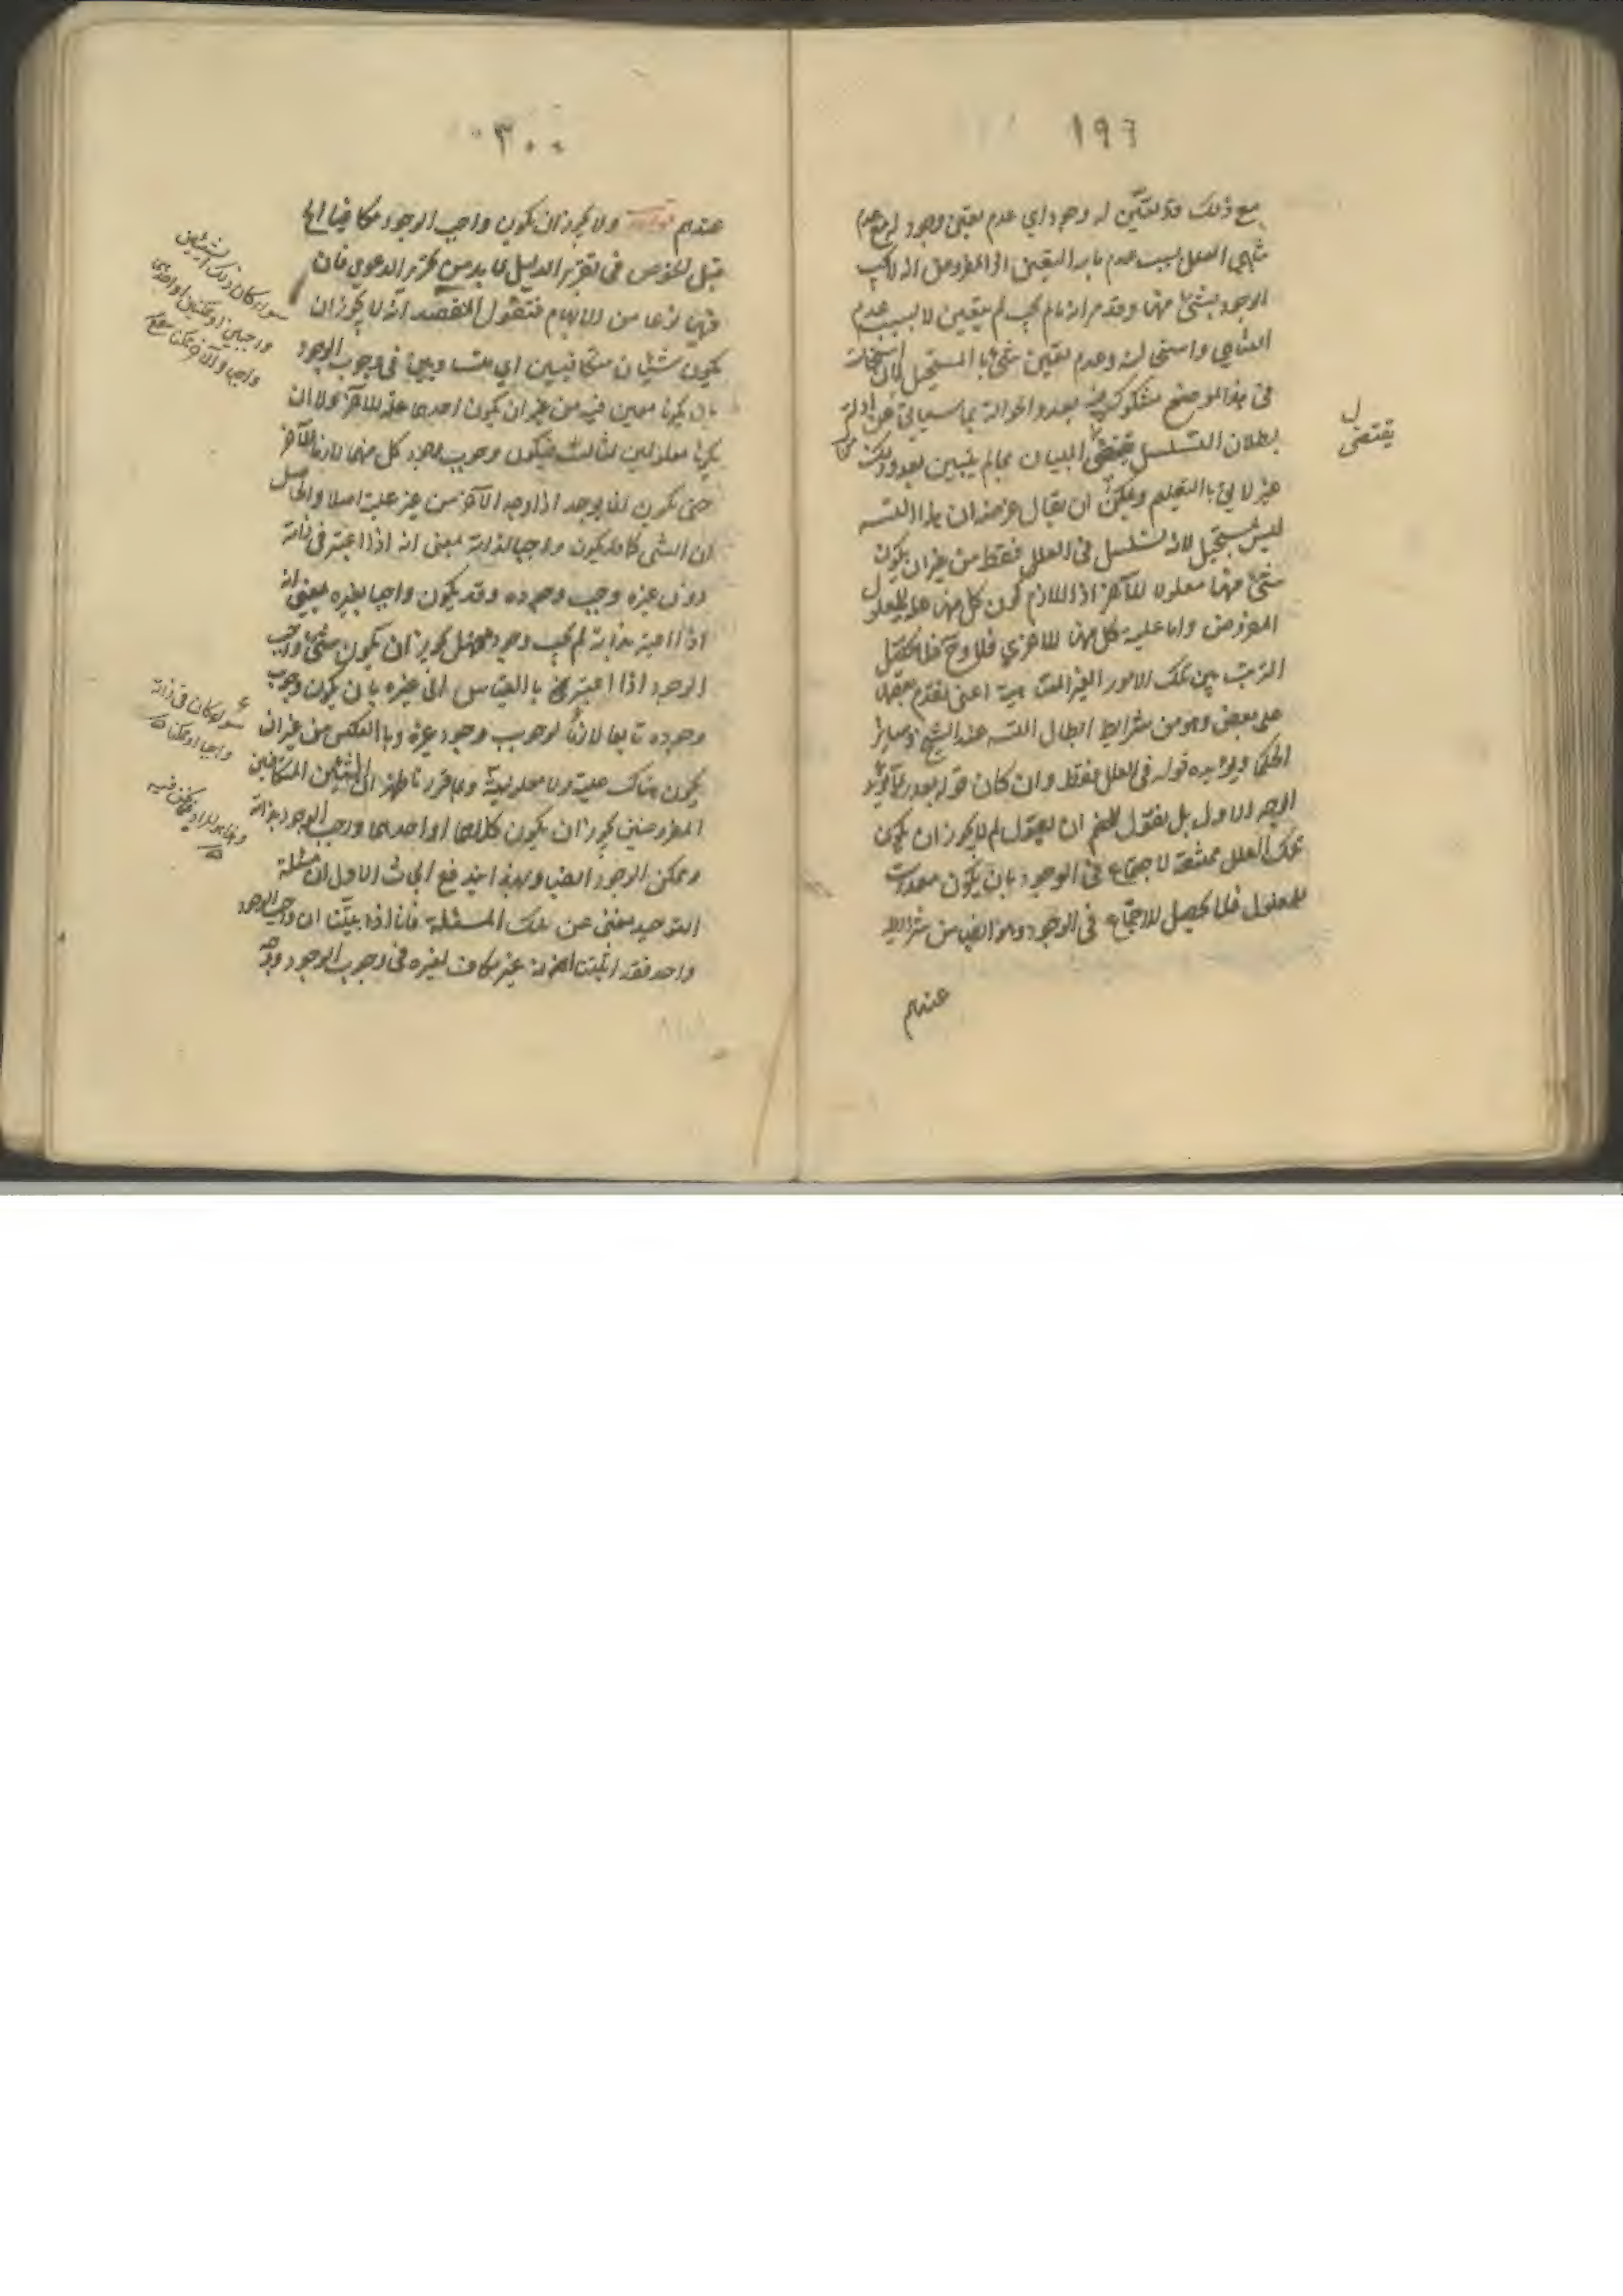 ١٩٦
مع ذلك قد تعين له وجود اي عدم تعين وجود له مع عدم
تناهي العلل بسبب عدم ما به التعين اذ المفروض انه لا يجب
الوجود بشئ منها وقد مر انه ما لم يجب لم يتعين لا بسبب عدم
التناهي واستحالته وعدم تعين شئ بالمستحيل
في هذا الموضع مشكوك فيه بعد والحوالة بما سيأتي من ادلة
بطلان التسلسل البيان بما لم يتبين بعد وذلك
غير لايق بالتعليم ويمكن ان يقال غرضه ان هذا التسـ
ليس بمستحيل لانه تسلسل في العلل فقط من غير ان يكون
شئ منها معلولا للآخر اذ اللازم كون كل منها علة للمعلول
المفروض واما علية كل منها للاخرى فلا وح فلا يحصل
الترتب بين تلك الامور الغير المتناهية اعني تقدم بعضها
على بعض وهو من شرايط ابطال التسـ عند الشيخ وسائر
الحكما ويؤيده قوله في العلل فقط وان كان قوله بعد
الوجه الاول بل نقول للخصم ان يقول لم لا يجوز ان يكون
تلك العلل ممتنعة الاجتماع في الوجود بان يكون معدات
للمعلول فلا يحصل الاجتماع في الوجود وهو ايضا من شرايط
عندهم
يقتضي
٣٠٠
عندهم قوله ولا يجوز ان يكون واجب الوجود مكافيا الخ
قبل الخوض في تقرير الدليل لا بد من تحرير الدعوى فان
فيها نوعا من الابهام فنقول المقصد انه لا يجوز ان
يكون شيئان متكافيين اي متساويين في وجوب الوجود
بان يكونا معين فيه من غير ان يكون احدهما علة للآخر ولا ان
يكونا معلولين لثالث فيكون وجوب وجود كل منهما لازما للآخر
حتى يكون انما يوجد اذا وجد الآخر من غير علية اصلا والحاصل
ان الشئ كما يكون واجبا لذاته بمعنى انه اذا اعتبر في ذاته
دون غيره وجب وجوده وقد يكون واجبا بغيره بمعنى انه
اذا اعتبر بذاته لم يجب وجوده فهل يجوز ان يكون شئ واجب
الوجود اذا اعتبر بالقياس الى غيره بان يكون وجوب
وجوده تابعا لازما لوجوب وجود غيره وبالعكس من غير ان
يكون هناك علية ولا معلولية ومما قررنا ظهر ان الشيئين المتكافيين
المفروضين يجوز ان يكون كلاهما او احدهما واجب الوجود بذاته
وممكن الوجود ايضا وبهذا اندفع ابحاث الاول ان مسئلة
التوحيد مغني عن تلك المسئلة فانا اذا بينا ان واجب الوجود
واحد فقد اثبتنا انه غير مكاف لغيره في وجوب الوجود
سواء كان ذلك الشيئين
واجبين او ممكنين او احدهما
واجبا والآخر ممكنا
سواء كان في ذاته
واجبا او ممكنا